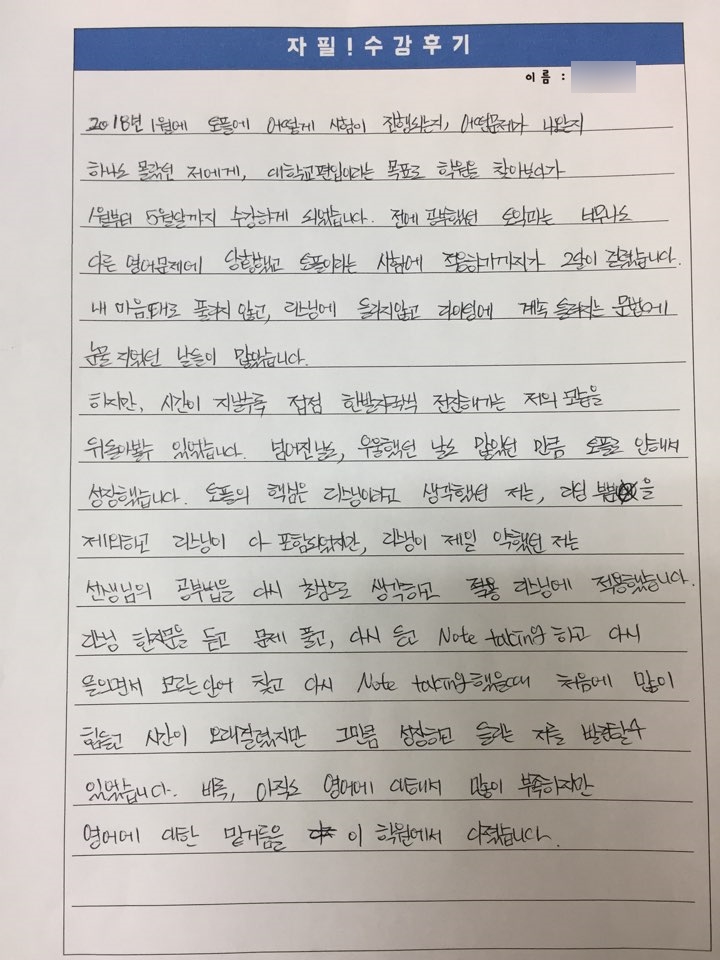 자필! 수강후기
이름 :
2018년 1월에 토플에 어떻게 시험이 진행되는지, 어떤문제가 나왔는지
하나도 몰랐던 저에게, 대학교편입이라는 목표로 학원을 찾아보다가
1월부터 5월달까지 수강하게 되었습니다. 전에 공부했던 토익과는 너무나도
다른 영어문제에 당황했고 토플이라는 시험에 적응하기까지가 2달이 걸렸습니다.
내 마음대로 풀리지 않고, 리스닝에 들리지않고 라이팅에 계속 틀리는 문법에
눈물 지었던 날들이 많았습니다.
하지만, 시간이 지날수록 점점 한발자국씩 전진해가는 저의 모습을
뒤돌아볼수 있었습니다. 넘어진날도, 우울했던 날도 많았던 만큼 토플로 인해서
성장했습니다. 토플의 핵심은 리스닝이라고 생각했던 저는, 리딩 부분을
제외하고 리스닝이 다 포함되었지만, 리스닝이 제일 약했던 저는
선생님의 공부법을 다시 초심으로 생각하고 적용 리스닝에 적용했습니다.
한지문을 듣고 문제 풀고, 다시 듣고 Note taking 하고 다시
들으면서 모르는단어 찾고 다시 Note taking 했을때 처음에 많이
힘들고 시간이 오래걸렸지만 그만큼 성장하고 들리는 저를 발견할수
있었습니다. 비록, 아직도 영어에 대해서 많이 부족하지만
영어에 대한 밑거름을 이 학원에서 다졌습니다.